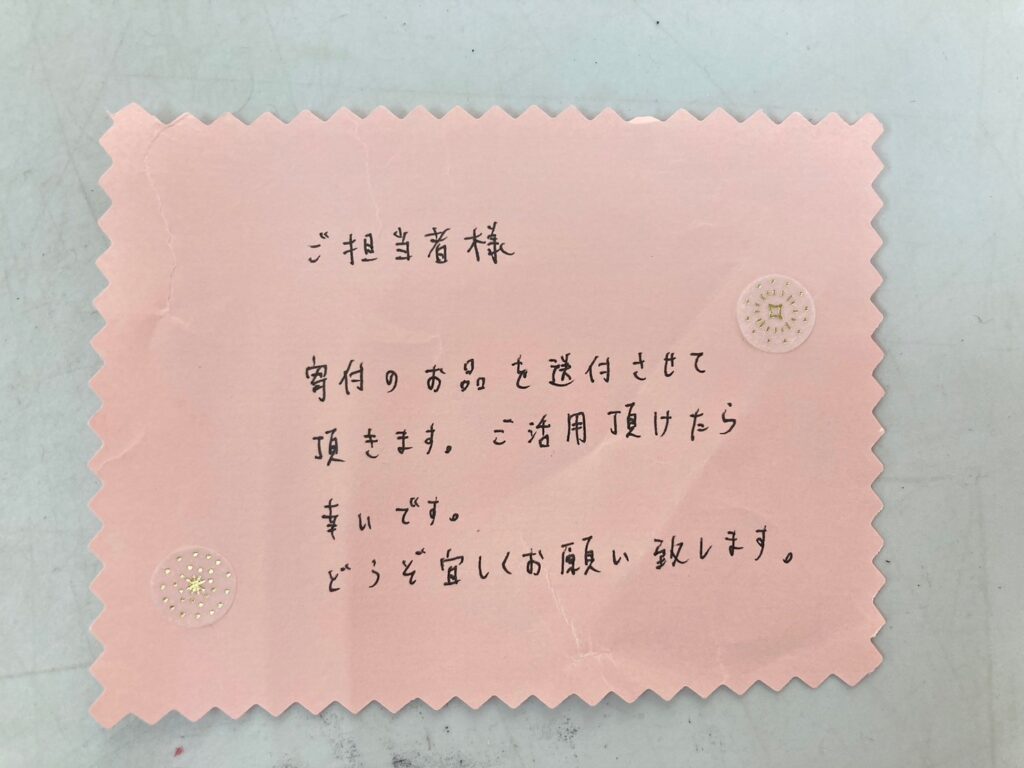 ご担当者様
寄付のお品を送付させて
頂きます。ご活用頂けたら
幸いです。
どうぞ宜しくお願い致します。